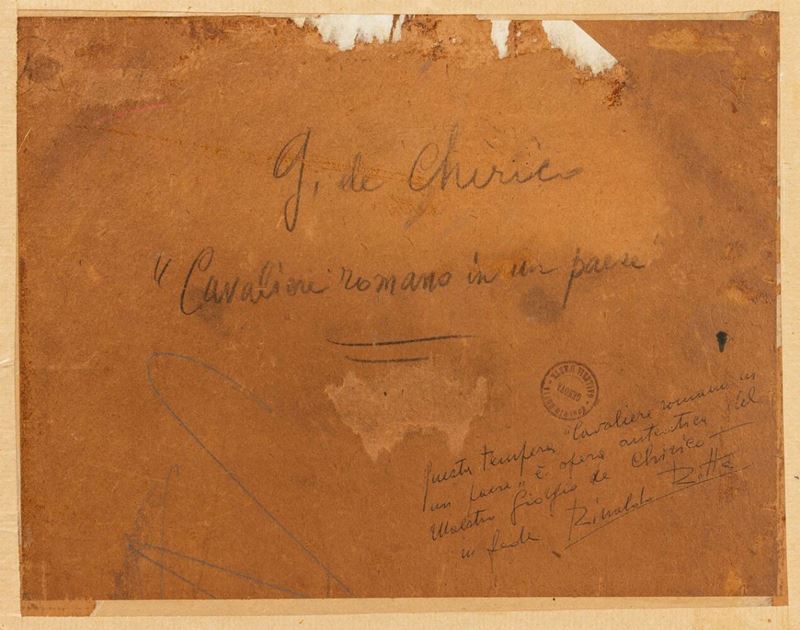 G. de Chirico
"Cavaliere romano in un paese"
Questa tempera "Cavaliere romano in
un paese" è opera autentica del
Maestro Giorgio de Chirico
in fede Rinaldo Rotta